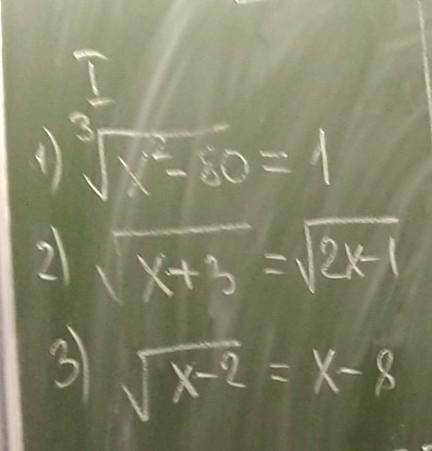 I
1) ∛(x² - 80) = 1
2) √(x+3) = √(2x-1)
3) √(x-2) = x - 8